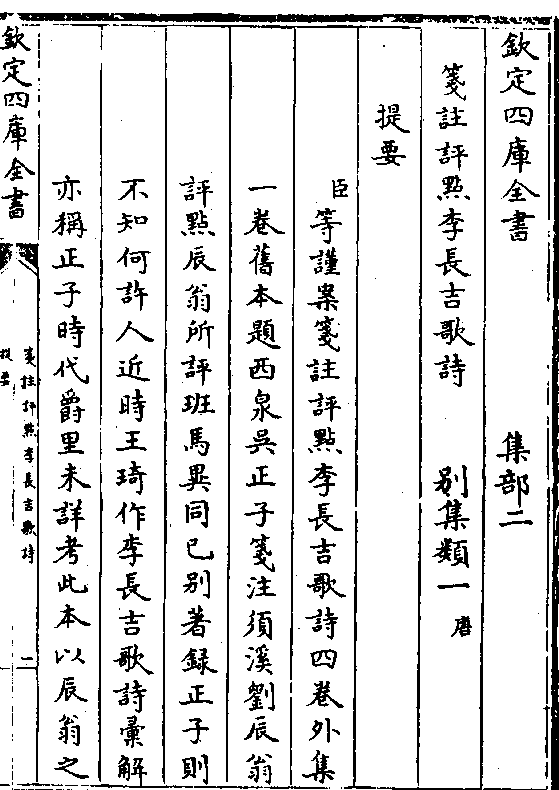 欽定四庫全書　　　　　集部二
箋註評點李長吉歌詩　　別集類一唐
提要
臣等謹案箋註評點李長吉歌詩四卷外集
一卷舊本題西泉吳正子箋注須溪劉辰翁
評點辰翁所評班馬異同已别著録正子則
不知何許人近時王琦作李長吉歌詩彚解
亦稱正子時代爵里未詳考此本以辰翁之
欽定四庫全書
箋註評點李長吉歌詩
提要
二